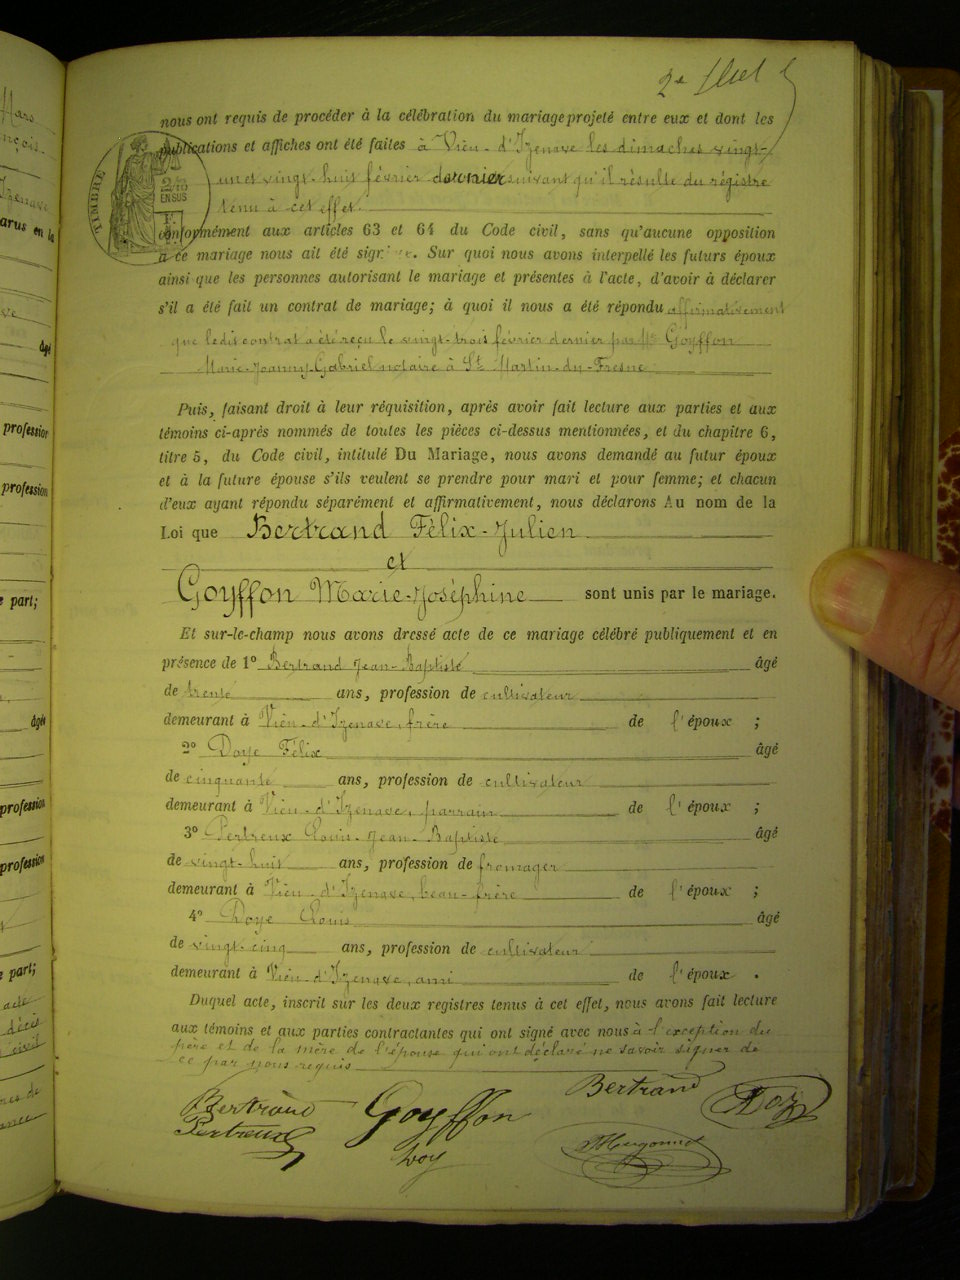 2e
nous ont requis de procéder à la célébration du mariage projeté entre eux et dont les
publications et affiches ont été faites à Vieu-d'Izenave les dimaches vingt-
un et vingt-huit février dernier suivant qu'il résulte du régistre
tenu à cet effet.
TIMBRE
EN SUS
conformément aux articles 63 et 64 du Code civil, sans qu'aucune opposition
à ce mariage nous ait été signifiée. Sur quoi nous avons interpellé les futurs époux
ainsi que les personnes autorisant le mariage et présentes à l'acte, d'avoir à déclarer
s'il a été fait un contrat de mariage; à quoi il nous a été répondu affirmativement
que ledit contrat a été reçu le vingt-trois février dernier par Me Goyffon
Marie-Joanny-Gabriel notaire à St Martin-du-Fresne
Puis, faisant droit à leur réquisition, après avoir fait lecture aux parties et aux
témoins ci-après nommés de toutes les pièces ci-dessus mentionnées, et du chapitre 6,
titre 5, du Code civil, intitulé Du Mariage, nous avons demandé au futur époux
et à la future épouse s'ils veulent se prendre pour mari et pour femme; et chacun
d'eux ayant répondu séparément et affirmativement, nous déclarons Au nom de la
Loi que Bertrand Félix-Julien
et
Goyffon Marie-Joséphine sont unis par le mariage.
Et sur-le-champ nous avons dressé acte de ce mariage célébré publiquement et en
présence de 1º Bertrand Jean-Baptiste âgé
de trente ans, profession de cultivateur
demeurant à Vieu-d'Izenave, frère de l'époux ;
2º Doye Félix âgé
de cinquante ans, profession de cultivateur
demeurant à Vieu-d'Izenave, parrain de l'époux ;
3º Pertreux Louis-Jean-Baptiste âgé
de vingt-huit ans, profession de fromager
demeurant à Vieu-d'Izenave, beau-frère de l'époux ;
4º Doye Louis âgé
de vingt-cinq ans, profession de cultivateur
demeurant à Vieu-d'Izenave, ami de l'époux .
Duquel acte, inscrit sur les deux registres tenus à cet effet, nous avons fait lecture
aux témoins et aux parties contractantes qui ont signé avec nous à l'exception du
père et de la mère de l'épouse qui ont déclaré ne savoir signer de
ce par nous requis
Bertrand Goyffon Bertrand
Pertreux
âgé
profession
profession
part;
âgée
profession
profession
part;